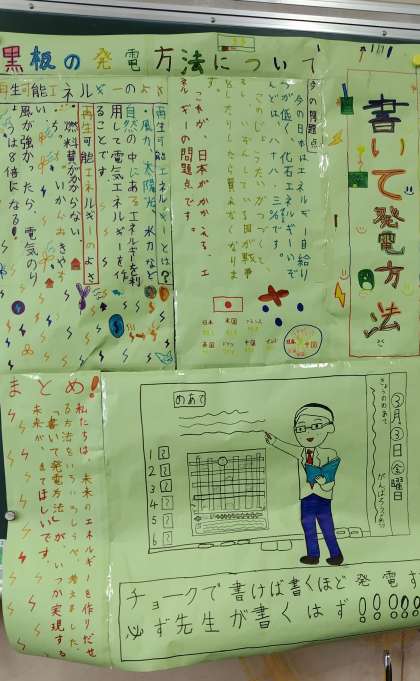 黒板の発電方法について
書いて発電方法
今の問題点
今の日本はエネルギー自給り
つが低く、化石エネルギーいぞ
んどは、八十八・三％です。
このじょうたいがつづくて
これが、日本がかかえる、エ
ネルギーの問題点です。
再生可能エネルギーのよさ
再生可能エネルギーとは？
風力、太陽光、水力など
自然の中にあるエネルギーを利
用して電気エネルギーを作
ることです。
再生可能エネルギーのよさ
・燃料費がかからない
風が強かったら、電気のりょ
うは8倍になる！
日本
米国
フランス
英国
ドイツ
中国
インド
まとめ！
私たちは、未来のエネルギーを作りだせ
る方法をいろいろしらべ、考えました。
「書いて発電方法」が、いつか実現する
未来が、きてほしいです。
3月3日金曜日
きょうのめあて
がんばろう
めあて
1
2
3
4
5
6
チョークで書けば書くほど発電す
必ず先生が書くはず!!!!!